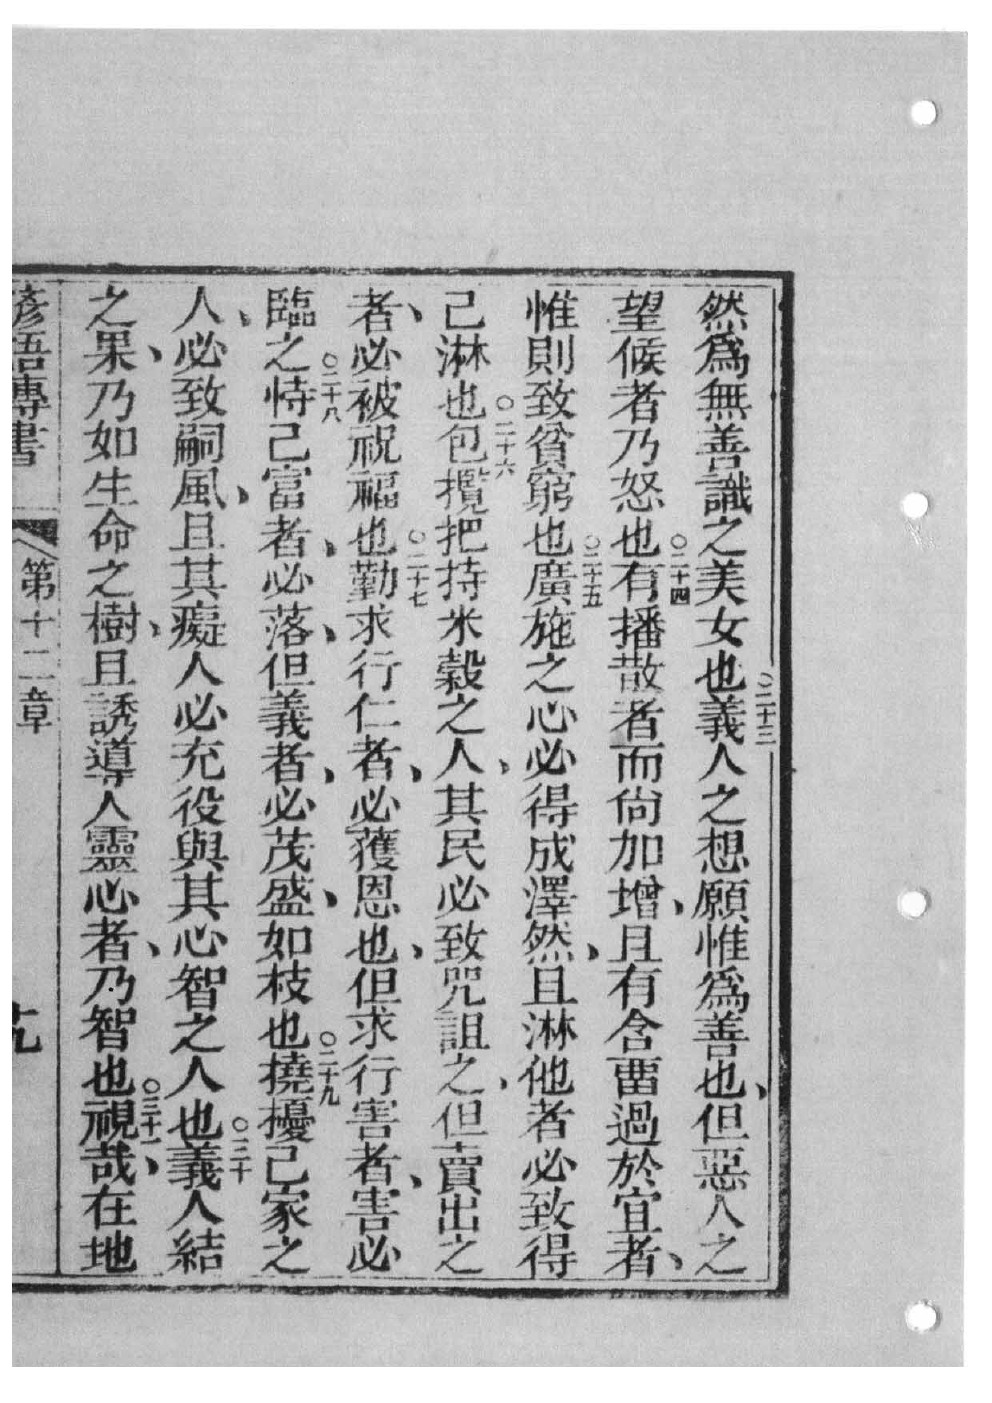 然爲無善識之美女也○二十三義人之想願惟爲善也、但惡人之
望候者乃怒也○二十四有播散者而尙加增、且有含畱過於宜者、
惟則致貧窮也○二十五廣施之心必得成澤然、且淋他者必致得
己淋也○二十六包攬把持米榖之人、其民必致咒詛之、但賣出之
者、必被祝福也○二十七勤求行仁者、必獲恩也、但求行害者、害必
臨之○二十八恃己富者、必落、但義者、必茂盛、如枝也○二十九撓擾己家之
人、必致嗣風、且其癡人必充役與其心智之人也○三十義人結
之果、乃如生命之樹、且誘導人靈心者、乃智也○三十一視哉、在地
諺語傳書 第十二章 十九